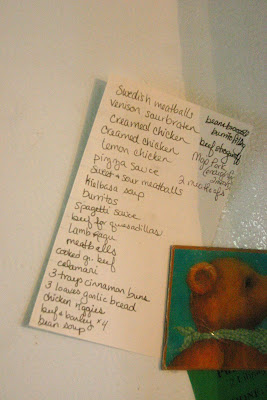 Swedish meatballs
venison saurbraten
Creamed chicken
Creamed chicken
lemon chicken
pizza sauce
Sweet & sour meatballs
Kielbasa soup
burritos
spagetti sauce
beef for quesadillas
lamb ragu
meatballs
cooked gr. beef
calamari
3 trays cinnamon buns
3 loaves garlic bread
chicken riggies
beef & barley x 4
bean soup
burrito filling
beef stroganoff
Mojo Pork
2 meatloafs